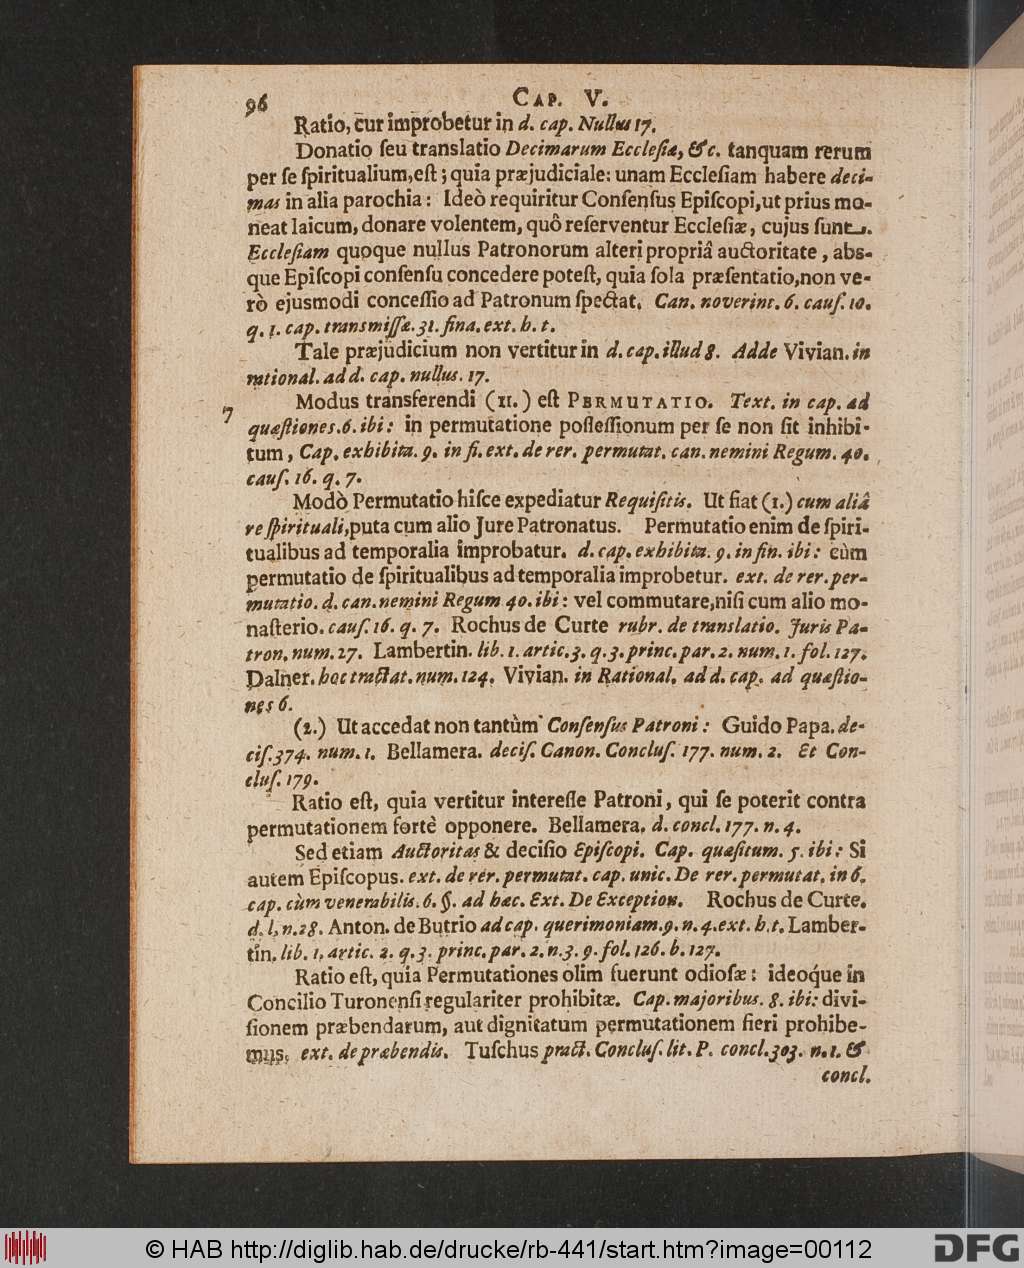 96
CAP. V.
Ratio, cur improbetur in d. cap. Nullus 17.
Donatio ſeu translatio Decimarum Eccleſiæ, &c. tanquam rerum
per ſe ſpiritualium,eſt; quia præjudiciale: unam Eccleſiam habere deci-
mas in alia parochia: Ideò requiritur Conſenſus Epiſcopi,ut prius mo-
neat laicum, donare volentem, quô reſerventur Eccleſiæ, cujus ſunt.
Eccleſiam quoque nullus Patronorum alteri propriâ auctoritate, abs-
que Epiſcopi conſenſu concedere poteſt, quia ſola præſentatio,non ve-
rò ejusmodi conceſſio ad Patronum ſpectat. Can. noverint. 6. cauſ. 10.
q. 1. cap. transmiſſæ. 31. fina. ext. h. t.
Tale præjudicium non vertitur in d. cap. illud 8. Adde Vivian. in
rational. ad d. cap. nullus. 17.
7
Modus transferendi (II.) eſt PERMUTATIO. Text. in cap. ad
quæſtiones. 6. ibi: in permutatione poſſeſſionum per ſe non ſit inhibi-
tum, Cap. exhibita. 9. in fi. ext. de rer. permutat. can. nemini Regum. 40.
cauſ. 16. q. 7.
Modò Permutatio hiſce expediatur Requiſitis. Ut fiat (1.) cum aliâ
re ſpirituali,puta cum alio Jure Patronatus. Permutatio enim de ſpiri-
tualibus ad temporalia improbatur. d. cap. exhibita. 9. in fin. ibi: cùm
permutatio de ſpiritualibus ad temporalia improbetur. ext. de rer. per-
mutatio. d. can. nemini Regum 40. ibi: vel commutare,niſi cum alio mo-
naſterio. cauſ. 16. q. 7. Rochus de Curte rubr. de translatio. Juris Pa-
tron. num. 27. Lambertin. lib. 1. artic. 3. q. 3. princ. par. 2. num. 1. fol. 127.
Dalner. hoc tractat. num. 124. Vivian. in Rational. ad d. cap. ad quæſtio-
nes 6.
(2.) Ut accedat non tantùm Conſenſus Patroni: Guido Papa. de-
ciſ. 374. num. 1. Bellamera. deciſ. Canon. Concluſ. 177. num. 2. Et Con-
cluſ. 179.
Ratio eſt, quia vertitur intereſſe Patroni, qui ſe poterit contra
permutationem fortè opponere. Bellamera. d. concl. 177. n. 4.
Sed etiam Auctoritas & deciſio Epiſcopi. Cap. quæſitum. 5. ibi: Si
autem Epiſcopus. ext. de rer. permutat. cap. unic. De rer. permutat. in 6.
cap. cùm venerabilis. 6. §. ad hæc. Ext. De Exception. Rochus de Curte.
d. l. n. 28. Anton. de Butrio ad cap. querimoniam. 9. n. 4. ext. h. t. Lamber-
tin. lib. 1. artic. 2. q. 3. princ. par. 2. n. 3. 9. fol. 126. b. 127.
Ratio eſt, quia Permutationes olim fuerunt odioſæ: ideoq́ue in
Concilio Turonenſi regulariter prohibitæ. Cap. majoribus. 8. ibi: divi-
ſionem præbendarum, aut dignitatum permutationem fieri prohibe-
mus. ext. de præbendis. Tuſchus pract. Concluſ. lit. P. concl. 303. n. 1. &
concl.
© HAB http://diglib.hab.de/drucke/rb-441/start.htm?image=00112
DFG